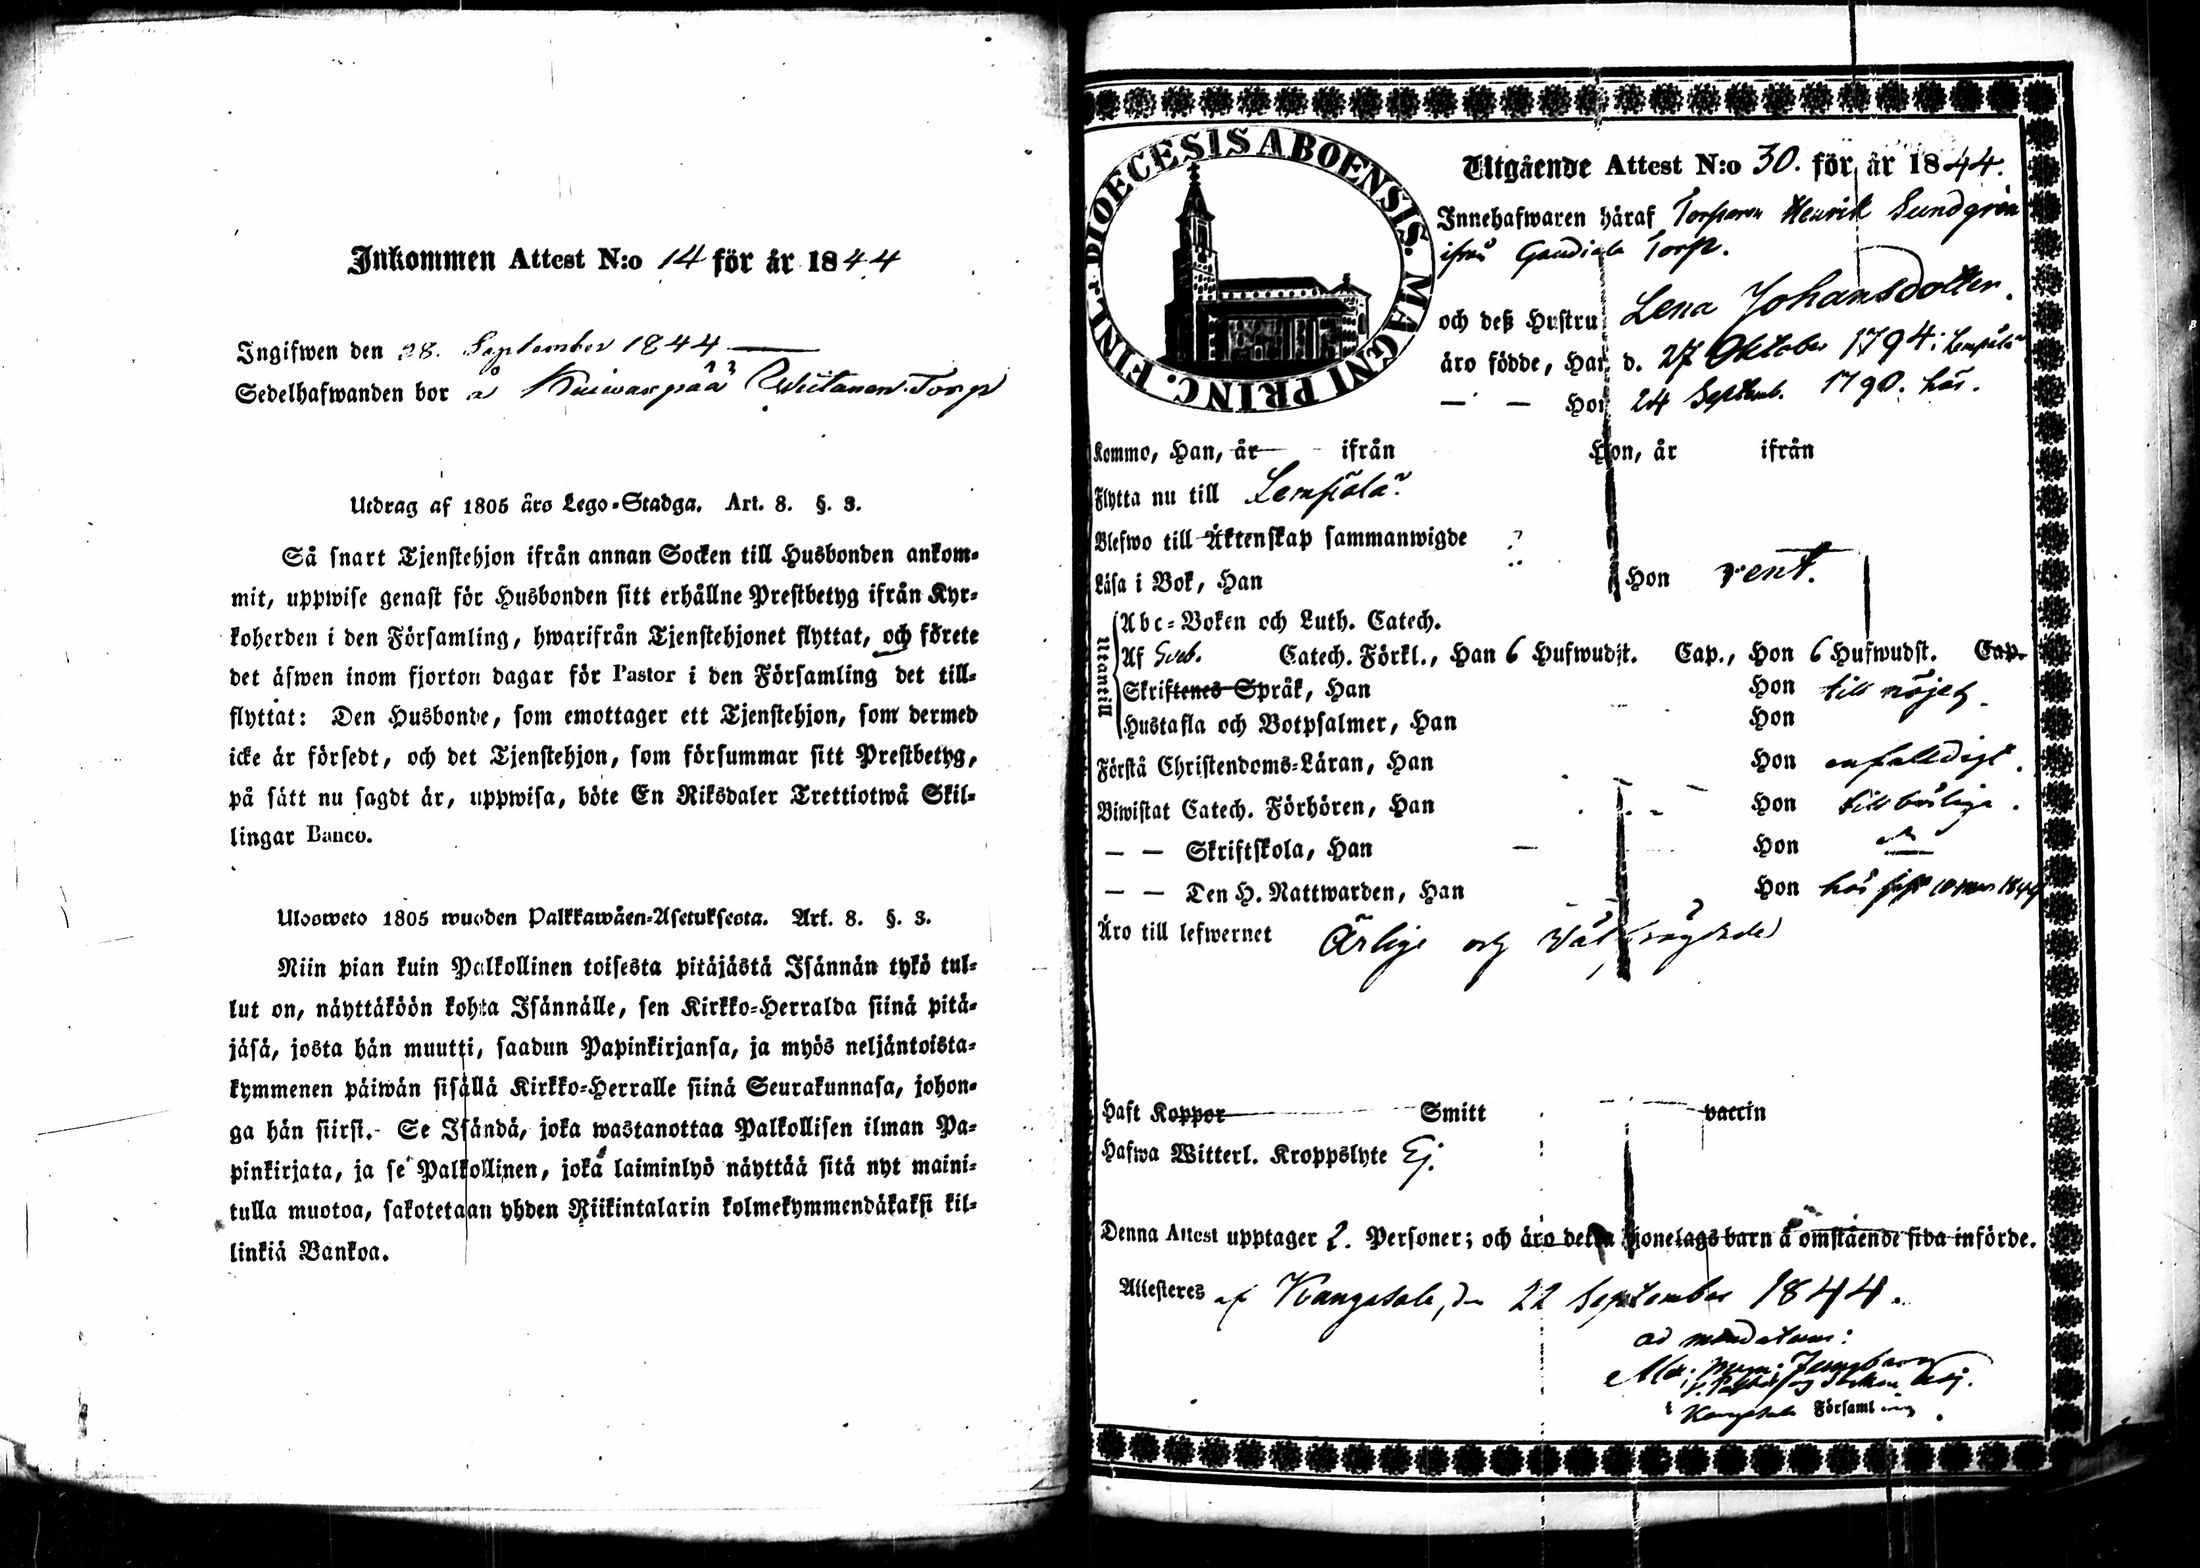 Inkommen Attest N:o 14 för år 1844
Ingifwen den 28. September 1844
Sedelhafwanden bor å Kuiwaspää Wiitanen Torp
Utdrag af 1805 års Lego-Stadga. Art. 8. §. 3.
Så snart Tjenstehjon ifrån annan Socken till Husbonden ankom-
mit, uppwise genast för Husbonden sitt erhållne Prestbetyg ifrån Kyr-
koherden i den Församling, hwarifrån Tjenstehjonet flyttat, och förete
det äfwen inom fjorton dagar för Pastor i den Församling det till-
flyttat: Den Husbonde, som emottager ett Tjenstehjon, som dermed
icke är försedt, och det Tjenstehjon, som försummar sitt Prestbetyg,
på sätt nu sagdt är, uppwisa, böte En Riksdaler Trettiotwå Skil-
lingar Banco.
Ulosweto 1805 wuoden Palkkawäen-Asetuksesta. Art. 8. §. 3.
Niin pian kuin Palkollinen toisesta pitäjästä Isännän tykö tul-
lut on, näyttäköön kohta Isännälle, sen Kirkko-Herralda siinä pitä-
jäsä, josta hän muutti, saadun Papinkirjansa, ja myös neljäntoista-
kymmenen päiwän sisällä Kirkko-Herralle siinä Seurakunnasa, johon-
ga hän siirsi. Se Isändä, joka wastanottaa Palkollisen ilman Pa-
pinkirjata, ja se Palkollinen, joka laiminlyö näyttää sitä nyt maini-
tulla muotoa, sakotetaan yhden Riikintalarin kolmekymmendäkaksi kil-
linkiä Bankoa.
DIOECESIS ABOENSIS. MAGNI PRINC. FINL.
Utgående Attest N:o 30. för år 1844.
Innehafwaren häraf Torparen Henrik Sundgrén
ifrån Torp.
och deß Hustru Lena Johansdotter.
äro födde, Han d. 27 Oktober 1794 i Lempälä
— — Hon 24 Septemb. 1790. här.
Kommo, Han, år ifrån Hon, år ifrån
Flytta nu till Lempälä
Blefwo till Äktenskap sammanwigde
Läsa i Bok, Han Hon rent.
Utantill
Abc-Boken och Luth. Catech.
Af Sveb. Catech. Förkl., Han 6 Hufwudst. Cap., Hon 6 Hufwudst. Cap.
Skriftenes Språk, Han Hon till nöjes
Hustafla och Botpsalmer, Han Hon
Förstå Christendoms-Läran, Han Hon enfaldigt.
Biwistat Catech. Förhören, Han Hon tillbörliga.
— — Skriftskola, Han Hon
— — Den H. Nattwarden, Han Hon här sist 1844
Äro till lefwernet Ärlige och Väl frägdade
Haft Koppor Smitt vaccin
Hafwa Witterl. Kroppslyte Ej.
Denna Attest upptager 2. Personer; och äro deßa hjonelags barn å omstående sida införde.
Attesteres af Kangasala, den 22 September 1844.
ad mandatum:
i Kangasala Församling.